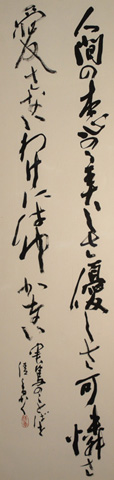 人間の恋の美しさ優しさ可憐さ
愛さないわけにはゆかない
実篤のことばを